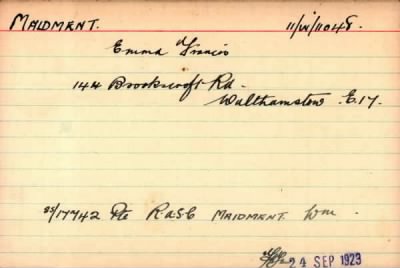 MAIDMENT. 11/W/11048.
Emma Francis
144 Brookscroft Rd.
Walthamstow E.17.
SS/17742 Pte RASC MAIDMENT. Wm.
24 SEP 1923